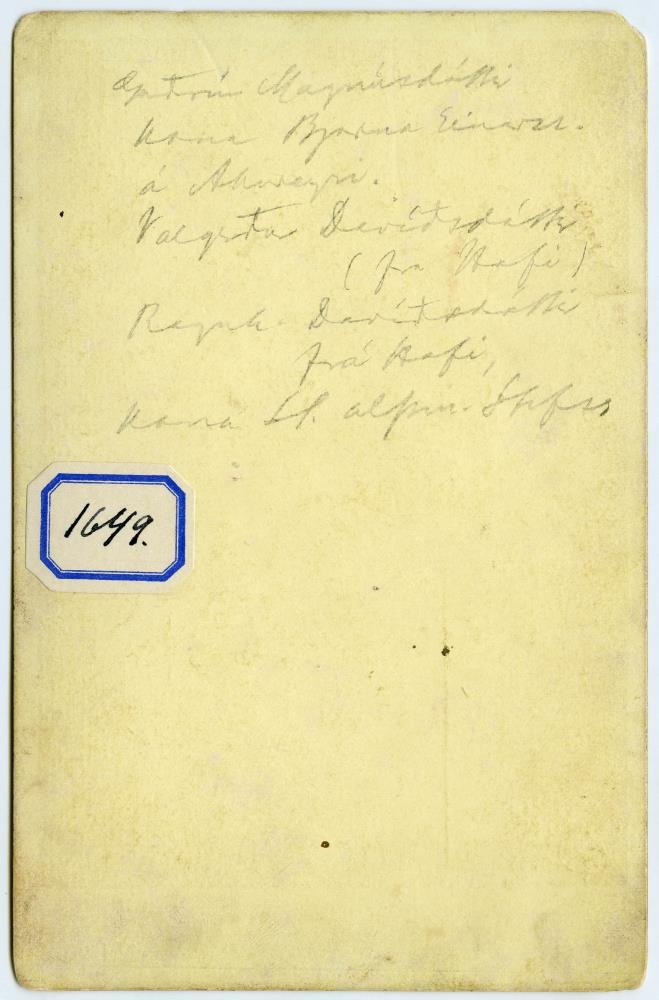 Guðrún Magnúsdóttir
kona Bjarna Einarss.
á Akureyri.
Valgerður Davíðsdóttir
(frá Hofi)
Ragnh. Davíðsdóttir
frá Hofi,
kona St. alþm. Stefáns
1649.